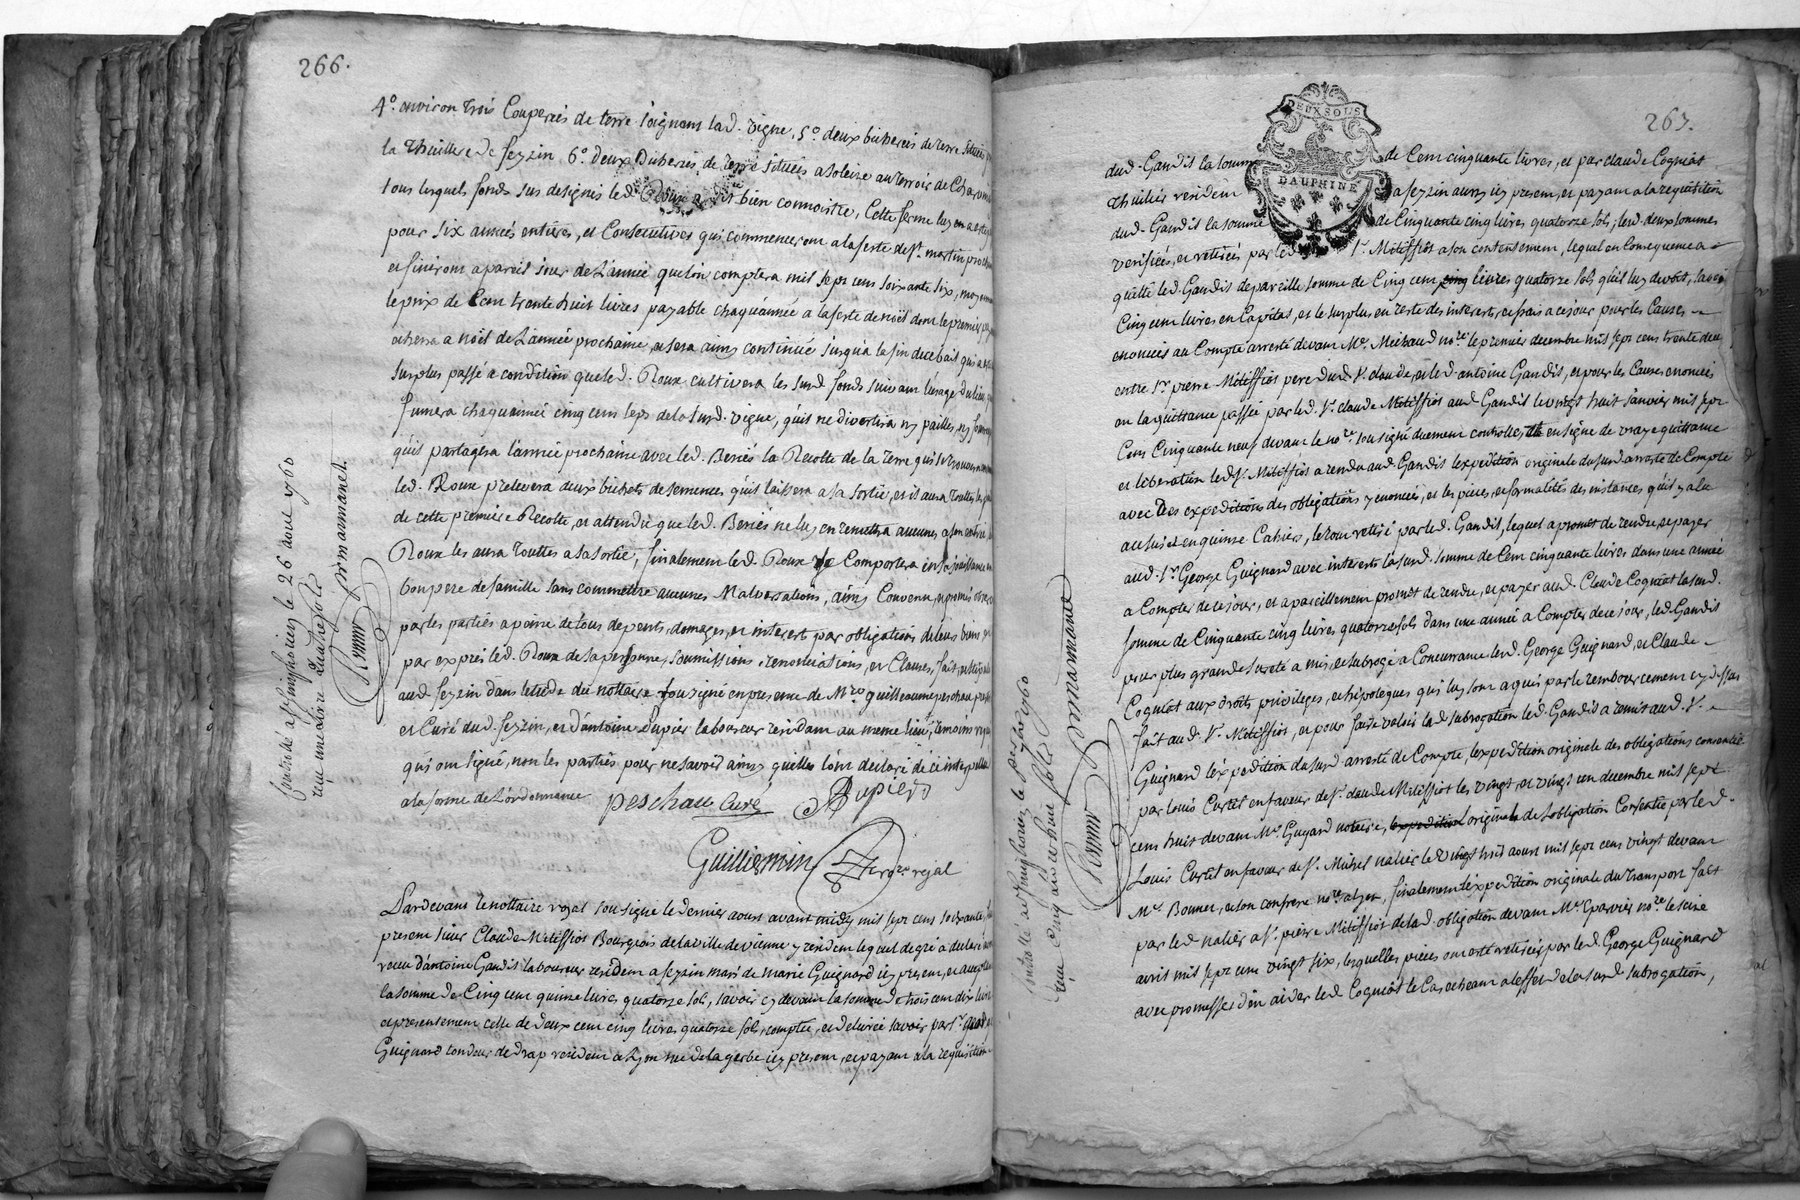 266.
4º. environ trois Couperées de terre joignant lad. vigne, 5º. deux bicherées de terre situées
la Thuilliere de seyzin, 6º. deux Bicherées de terre situées a soleize au terroir de
tous lesquels fonds sus designés led. Roux a dit bien connoistre, Cette ferme
pour six années entieres, et Consecutives qui commenceront a la feste de St. martin
et finiront a pareil jour de L'année que l'on comptera mil sept cens soixante six,
le prix de Cent trente huit livres payable chaqu'année a la feste de noël dont le premier
echera a noël de L'année prochaine, et sera ainsy continué jusqu'a la fin du ce bail qui a
surplus passé a condition que led. Roux cultivera les susd. fonds suivant l'usage du lieu,
fumera chaqu'année cinq cens seps de la susd. vigne, qu'il ne divertira ny pailles, ny
qu'il partagera l'année prochaine avec led. Beriés la Recolte de la terre
led. Roux prelevera deux bichets de semences qu'il laissera a sa sortie, et il aura touttes
de cette premiere Recolte, et attendu que led. Beriés ne luy en remettra aucunes a son entrée
Roux les aura touttes a sa sortie, finalement led. Roux se Comportera en sa jouissance en
bon pere de famille sans commettre aucunes Malversations, ainsy Convenu, et promis
par les parties a peine de tous depents, domages, et interests par obligations de leurs biens
par exprés led. Roux de sa personne, soumissions, renonciations, et Clauses, fait
aud. seyzin dans l'etude du nottaire sousigné en presence de Mre. guilleaume peschau
et Curé dud. seyzin, et d'antoine dupier laboureur resident au meme lieu, temoins
qui ont signé, non les parties pour ne savoir ainsy quelles l'ont declaré de ce interpellées
a la forme de L'ordonnance peschau Curé ADupier
Guilliermin nore royal
Controlé a st simphorien le 26 aout 1760
reçu une livre
permanamanet.
Pardevant le nottaire royal sousigné le dernier aoust avant midy mil sept cens soixante,
present sieur Claude Mitiffiot Bourgeois de la ville de vienne y resident lequel de gré a declaré
receu d'antoine Gandit laboureur resident a seyzin mari de marie Guignard icy present, et acceptant
la somme de Cinq cent quinze livres quatorze sols, savoir cy devant la somme de trois cent dix livres
et presentement celle de deux cent cinq livres quatorze sols, comptée, et delivrée savoir par sr.
Guignard tondeur de drap resident a Lyon rue de la gerbe icy present, et payant a la requisition
267.
DEUX SOLS
DAUPHINÉ
dud. Gandit la somme de Cent cinquante livres, et par claude Cogniat
Thuilliés resident a seyzin aussy icy present, et payant a la requisition
dud. Gandit la somme de Cinquante cinq livres quatorze sols, lesd. deux sommes
verifiées, et retirées par led. sr. Mitiffiot a son contentement, lequel en consequence a
quitté led. Gandit de pareille somme de Cinq cent cinq livres quatorze sols qu'il luy devoit, savoir
Cinq cent livres en Capital, et le surplus en reste des interests, et frais a ce jour pour les Causes
enoncées au Compte arresté devant Me. Michaud nore. le premier decembre mil sept cens trente deux
entre sr. pierre Mitiffiot pere dud. sr. claude, et led. antoine Gandit, et pour les Causes enoncées
en la quittance passée par led. sr. claude Mitiffiot aud. Gandit le vingt huit janvier mil sept
Cens Cinquante neuf devant le nore. sousigné duement controllée, et en signe de vraye quittance
et liberation led. sr. Mitiffiot a rendu aud. Gandit l'expedition originale du susd. arresté de Compte
avec Les expeditions des obligations y enoncées, et les pieces, et formalités des instances qu'il y a eu
au sus et en quinze Cahiers, le tout retiré par led. Gandit, lequel a promet de rendre, et payer
aud. sr. George Guignard avec interests la susd. somme de Cent cinquante livres dans une année
a Compter de ce jour, et a pareillement promet de rendre, et payer aud. Claude Cogniat la susd.
somme de Cinquante cinq livres quatorze sols dans une année a Compter de ce jour, led. Gandit
pour plus grande sureté a mis, et subrogé a Concurrance lesd. George Guignard, et Claude
Cogniat aux droits, privileges, et hipoteques qui luy sont aquis par le remboursement cy dessus
fait aud. sr. Mitiffiot, et pour faire valoir lad. subrogation led. Gandit a remis aud. sr.
Guignard l'expedition du susd. arresté de Compte, l'expedition originale des obligations consentie
par Louis Curtil en faveur de sr. claude Mitiffiot les vingt, et vingt un decembre mil sept
cens huit devant Me. Guyard notaire, l'expedition originale de L'obligation Consentie par led.
Louis Curtil en faveur de sr. Michel nalies le vingt huit aoust mil sept cens vingt devant
Me. Bonnet, et son confrere nores. a lyon, finalement l'expedition originale du transport fait
par led. nalies a sr. pierre Mitiffiot de lad. obligation devant Me. nore. le seize
avril mil sept cent vingt six, lesquelles pieces ont esté retirées par led. George Guignard
avec promesse d'en aider led. Cogniat le Cas echeant a l'effet de la susd. subrogation,
permanamanet